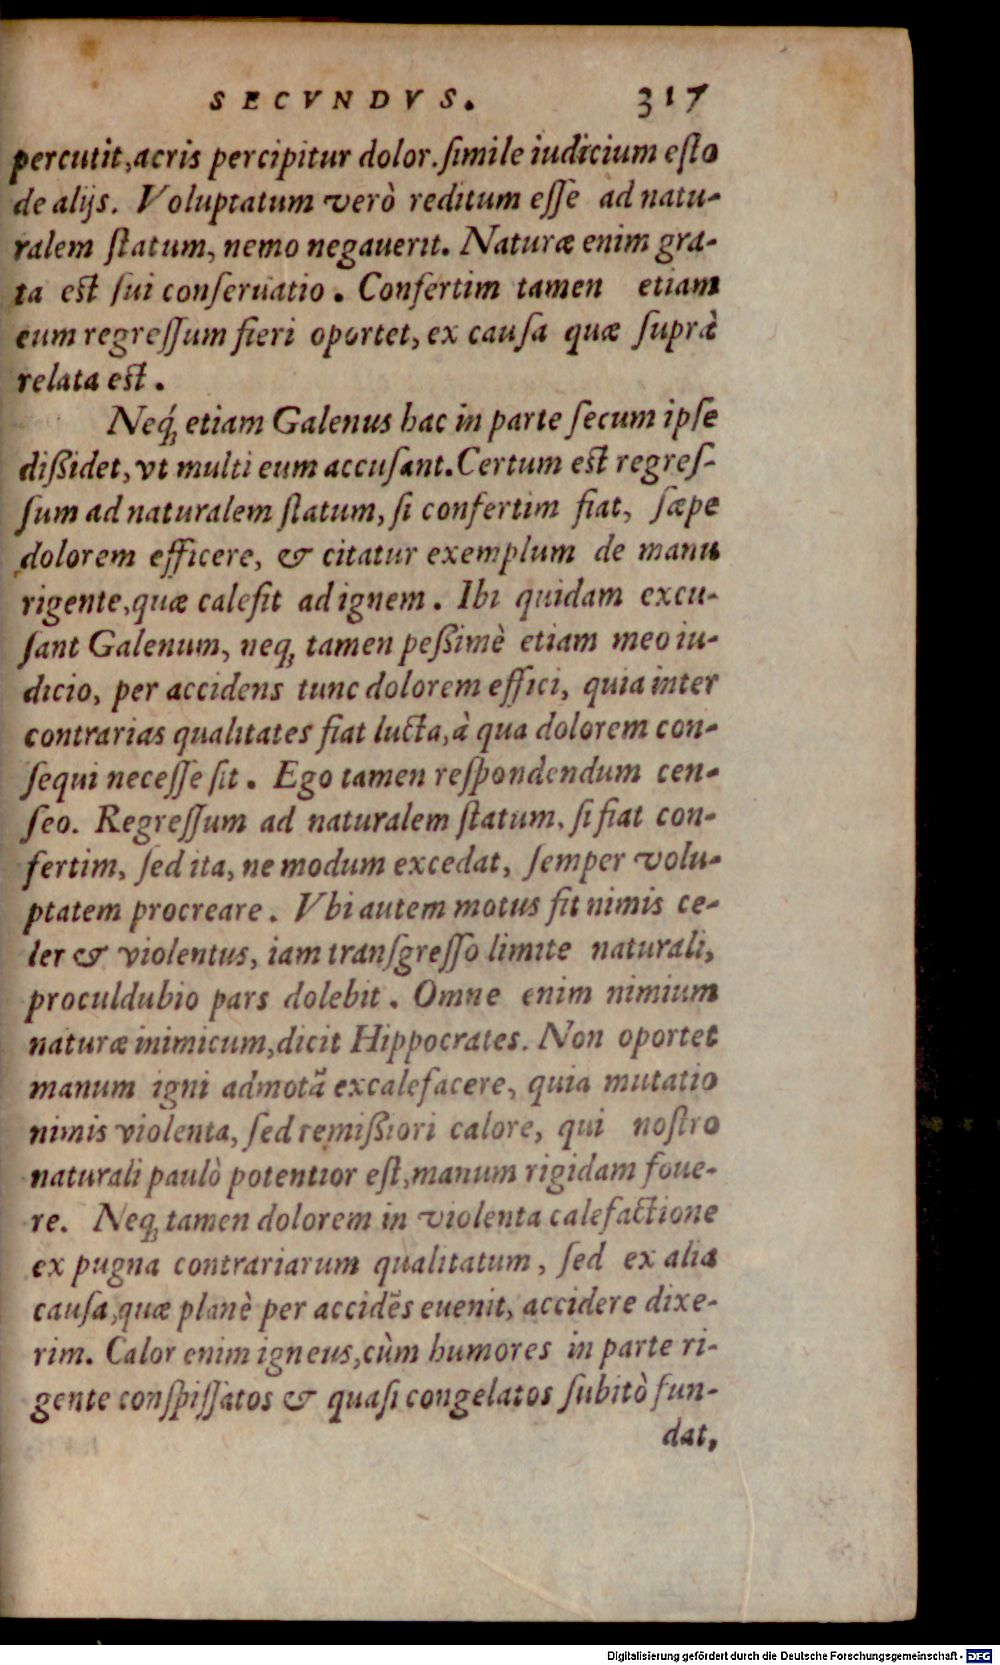 SECVNDVS. 317
percutit, acris percipitur dolor. ſimile iudicium eſto
de alijs. Voluptatum verò reditum eſſe ad natu-
ralem ſtatum, nemo negauerit. Naturæ enim gra-
ta eſt ſui conſeruatio. Confertim tamen etiam
eum regreſſum fieri oportet, ex cauſa quæ ſuprà
relata eſt.
Neq́; etiam Galenus hac in parte ſecum ipſe
dißidet, vt multi eum accuſant. Certum eſt regreſ-
ſum ad naturalem ſtatum, ſi confertim fiat, ſæpe
dolorem efficere, & citatur exemplum de manu
rigente, quæ calefit ad ignem. Ibi quidam excu-
ſant Galenum, neq; tamen peßimè etiam meo iu-
dicio, per accidens tunc dolorem effici, quia inter
contrarias qualitates fiat lucta, à qua dolorem con-
ſequi neceſſe ſit. Ego tamen reſpondendum cen-
ſeo. Regreſſum ad naturalem ſtatum, ſi fiat con-
fertim, ſed ita, ne modum excedat, ſemper volu-
ptatem procreare. Vbi autem motus fit nimis ce-
ler & violentus, iam tranſgreſſo limite naturali,
proculdubio pars dolebit. Omne enim nimium
naturæ inimicum, dicit Hippocrates. Non oportet
manum igni admotā excalefacere, quia mutatio
nimis violenta, ſed remißiori calore, qui noſtro
naturali paulò potentior eſt, manum rigidam foue-
re. Neq; tamen dolorem in violenta calefactione
ex pugna contrariarum qualitatum, ſed ex alia
cauſa, quæ planè per accidēs euenit, accidere dixe-
rim. Calor enim igneus, cùm humores in parte ri-
gente conſpiſſatos & quaſi congelatos ſubitò fun-
dat,
Digitalisierung gefördert durch die Deutsche Forschungsgemeinschaft - DFG